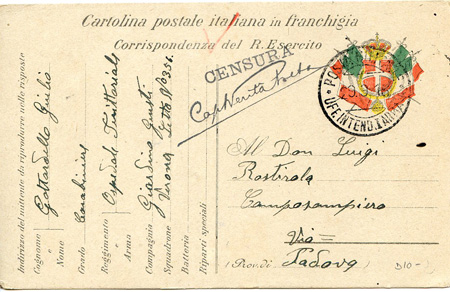 Cartolina postale italiana in franchigia
Corrispondenza del R. Esercito
CENSURA
POSTA
UFF. INTEND. I ARMATA
Al Don Luigi
Rostirola
Camposampiero
Via =
(Prov. di Padova
Indirizzo del mittente da riprodurre nelle risposte
Cognome Gottardello Giulio
Nome
Grado Carabiniere
Reggimento Ospedale Territoriale
Arma
Compagnia Giardino Giusti
Squadrone Verona Letto N° 356
Batteria
Riparti speciali